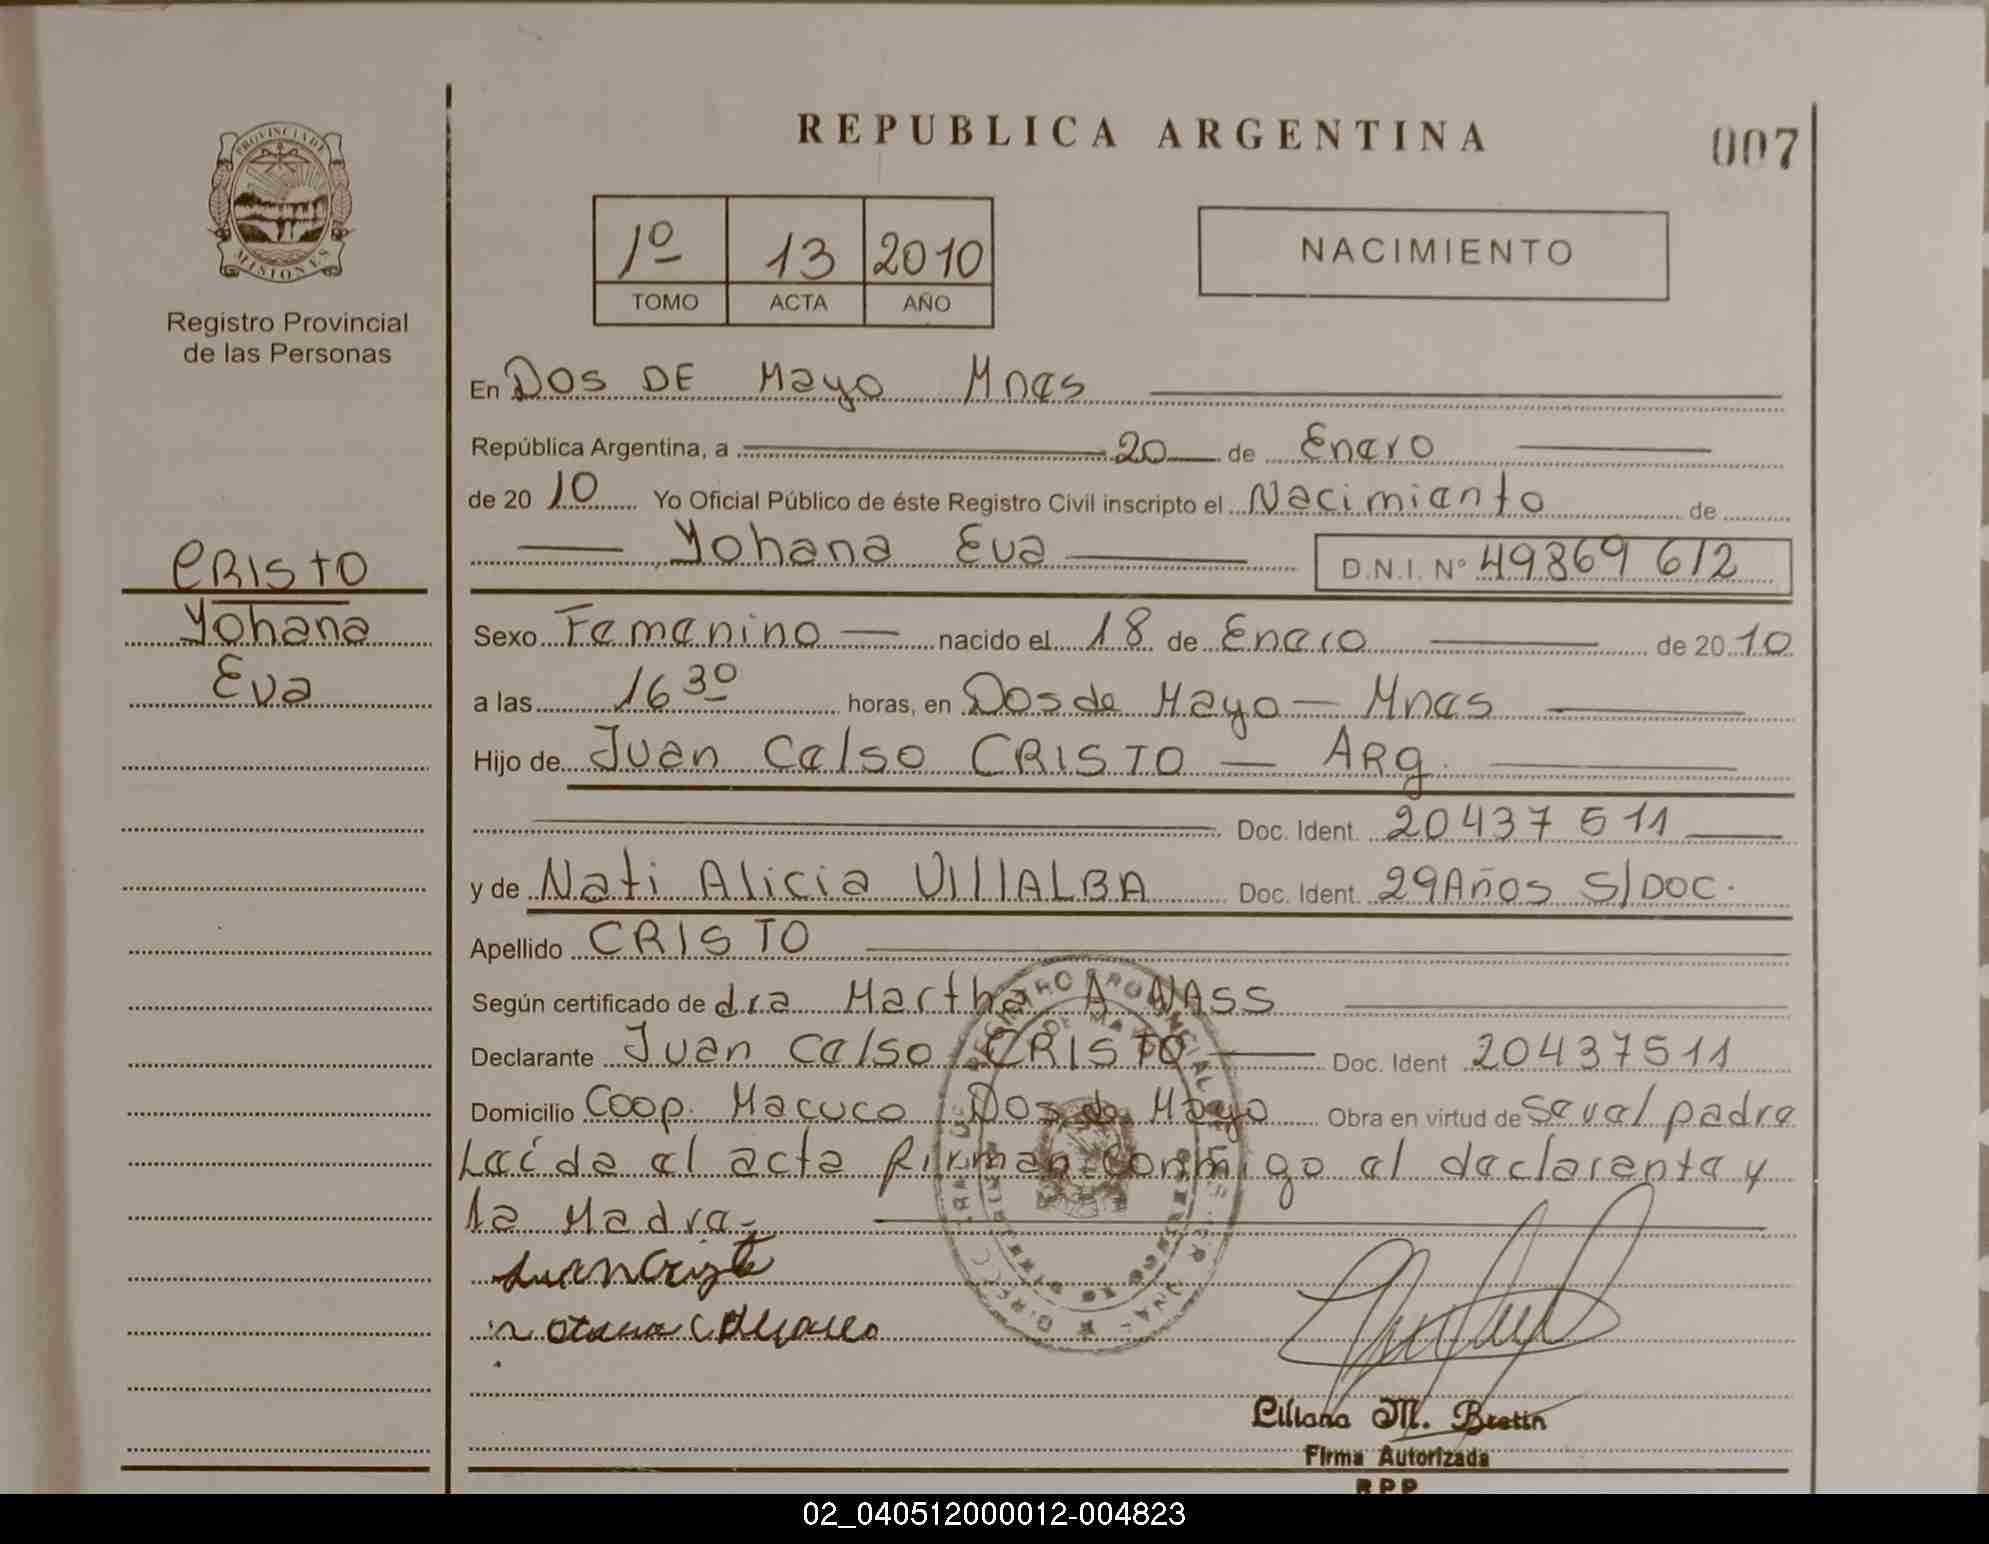 REPUBLICA ARGENTINA
007
PROVINCIA DE MISIONES
Registro Provincial
de las Personas
1º 13 2010
TOMO ACTA AÑO
NACIMIENTO
En Dos DE Mayo Mnes
República Argentina, a 20 de Enero
de 2010 Yo Oficial Público de éste Registro Civil inscripto el Nacimiento de
Yohana Eva D.N.I. Nº 49869 612
CRISTO
Yohana
Eva
Sexo Femenino nacido el 18 de Enero de 2010
a las 16 30 horas, en Dos de Mayo - Mnes
Hijo de Juan Celso CRISTO - ARg.
Doc. Ident. 20437 511
y de Nati Alicia VIllALBA Doc. Ident. 29 Años S/Doc.
Apellido CRISTO
Según certificado de dra Martha A NASS
Declarante Juan Celso CRISTO Doc. Ident 20437511
Domicilio Coop. Macuco Dos de Mayo Obra en virtud de Se val padre
Leída el acta firman conmigo el declarante y
la Madre-
Liliana M. Bretin
Firma Autorizada
RPP
02_040512000012-004823